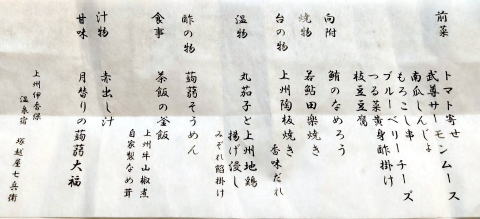 前菜
トマト寄せ
武尊サーモンムース
南瓜しんじょ
もろこし串
ブルーベリーチーズ
つる菜黄身酢掛け
枝豆豆腐
向附
鮪のなめろう
焼物
若鮎田楽焼き
台の物
上州陶板焼き
香味だれ
温物
丸茄子と上州地鶏
揚げ浸し
みぞれ餡掛け
酢の物
蒟蒻そうめん
食事
茶飯の釜飯
上州牛山椒煮
自家製なめ茸
汁物
赤出し汁
甘味
月替りの蒟蒻大福
上州伊香保
温泉宿 塚越屋七兵衛